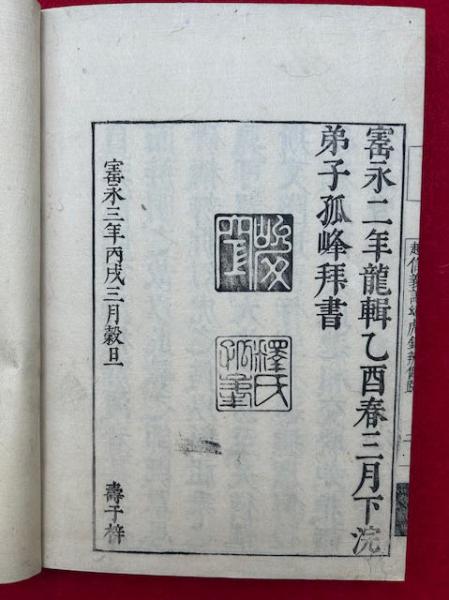 寶永二年龍輯乙酉春三月下浣
弟子孤峰拜書
釋氏
寶永三年丙戌三月穀旦
壽于梓